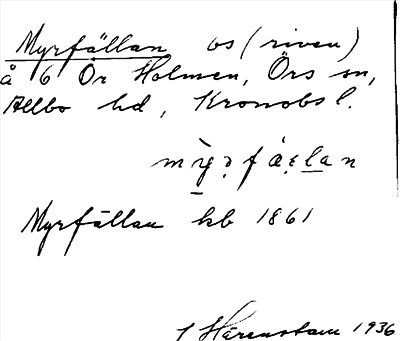 Myrfällan os (riven)
å 6 Ör Holmen, Örs sn,
Allbo hd, Kronobs l.
Myrfällan hb 1861
Härenstam 1936